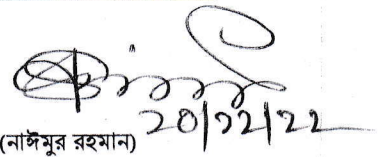 ২০/১২/২২
(নাঈমুর রহমান)